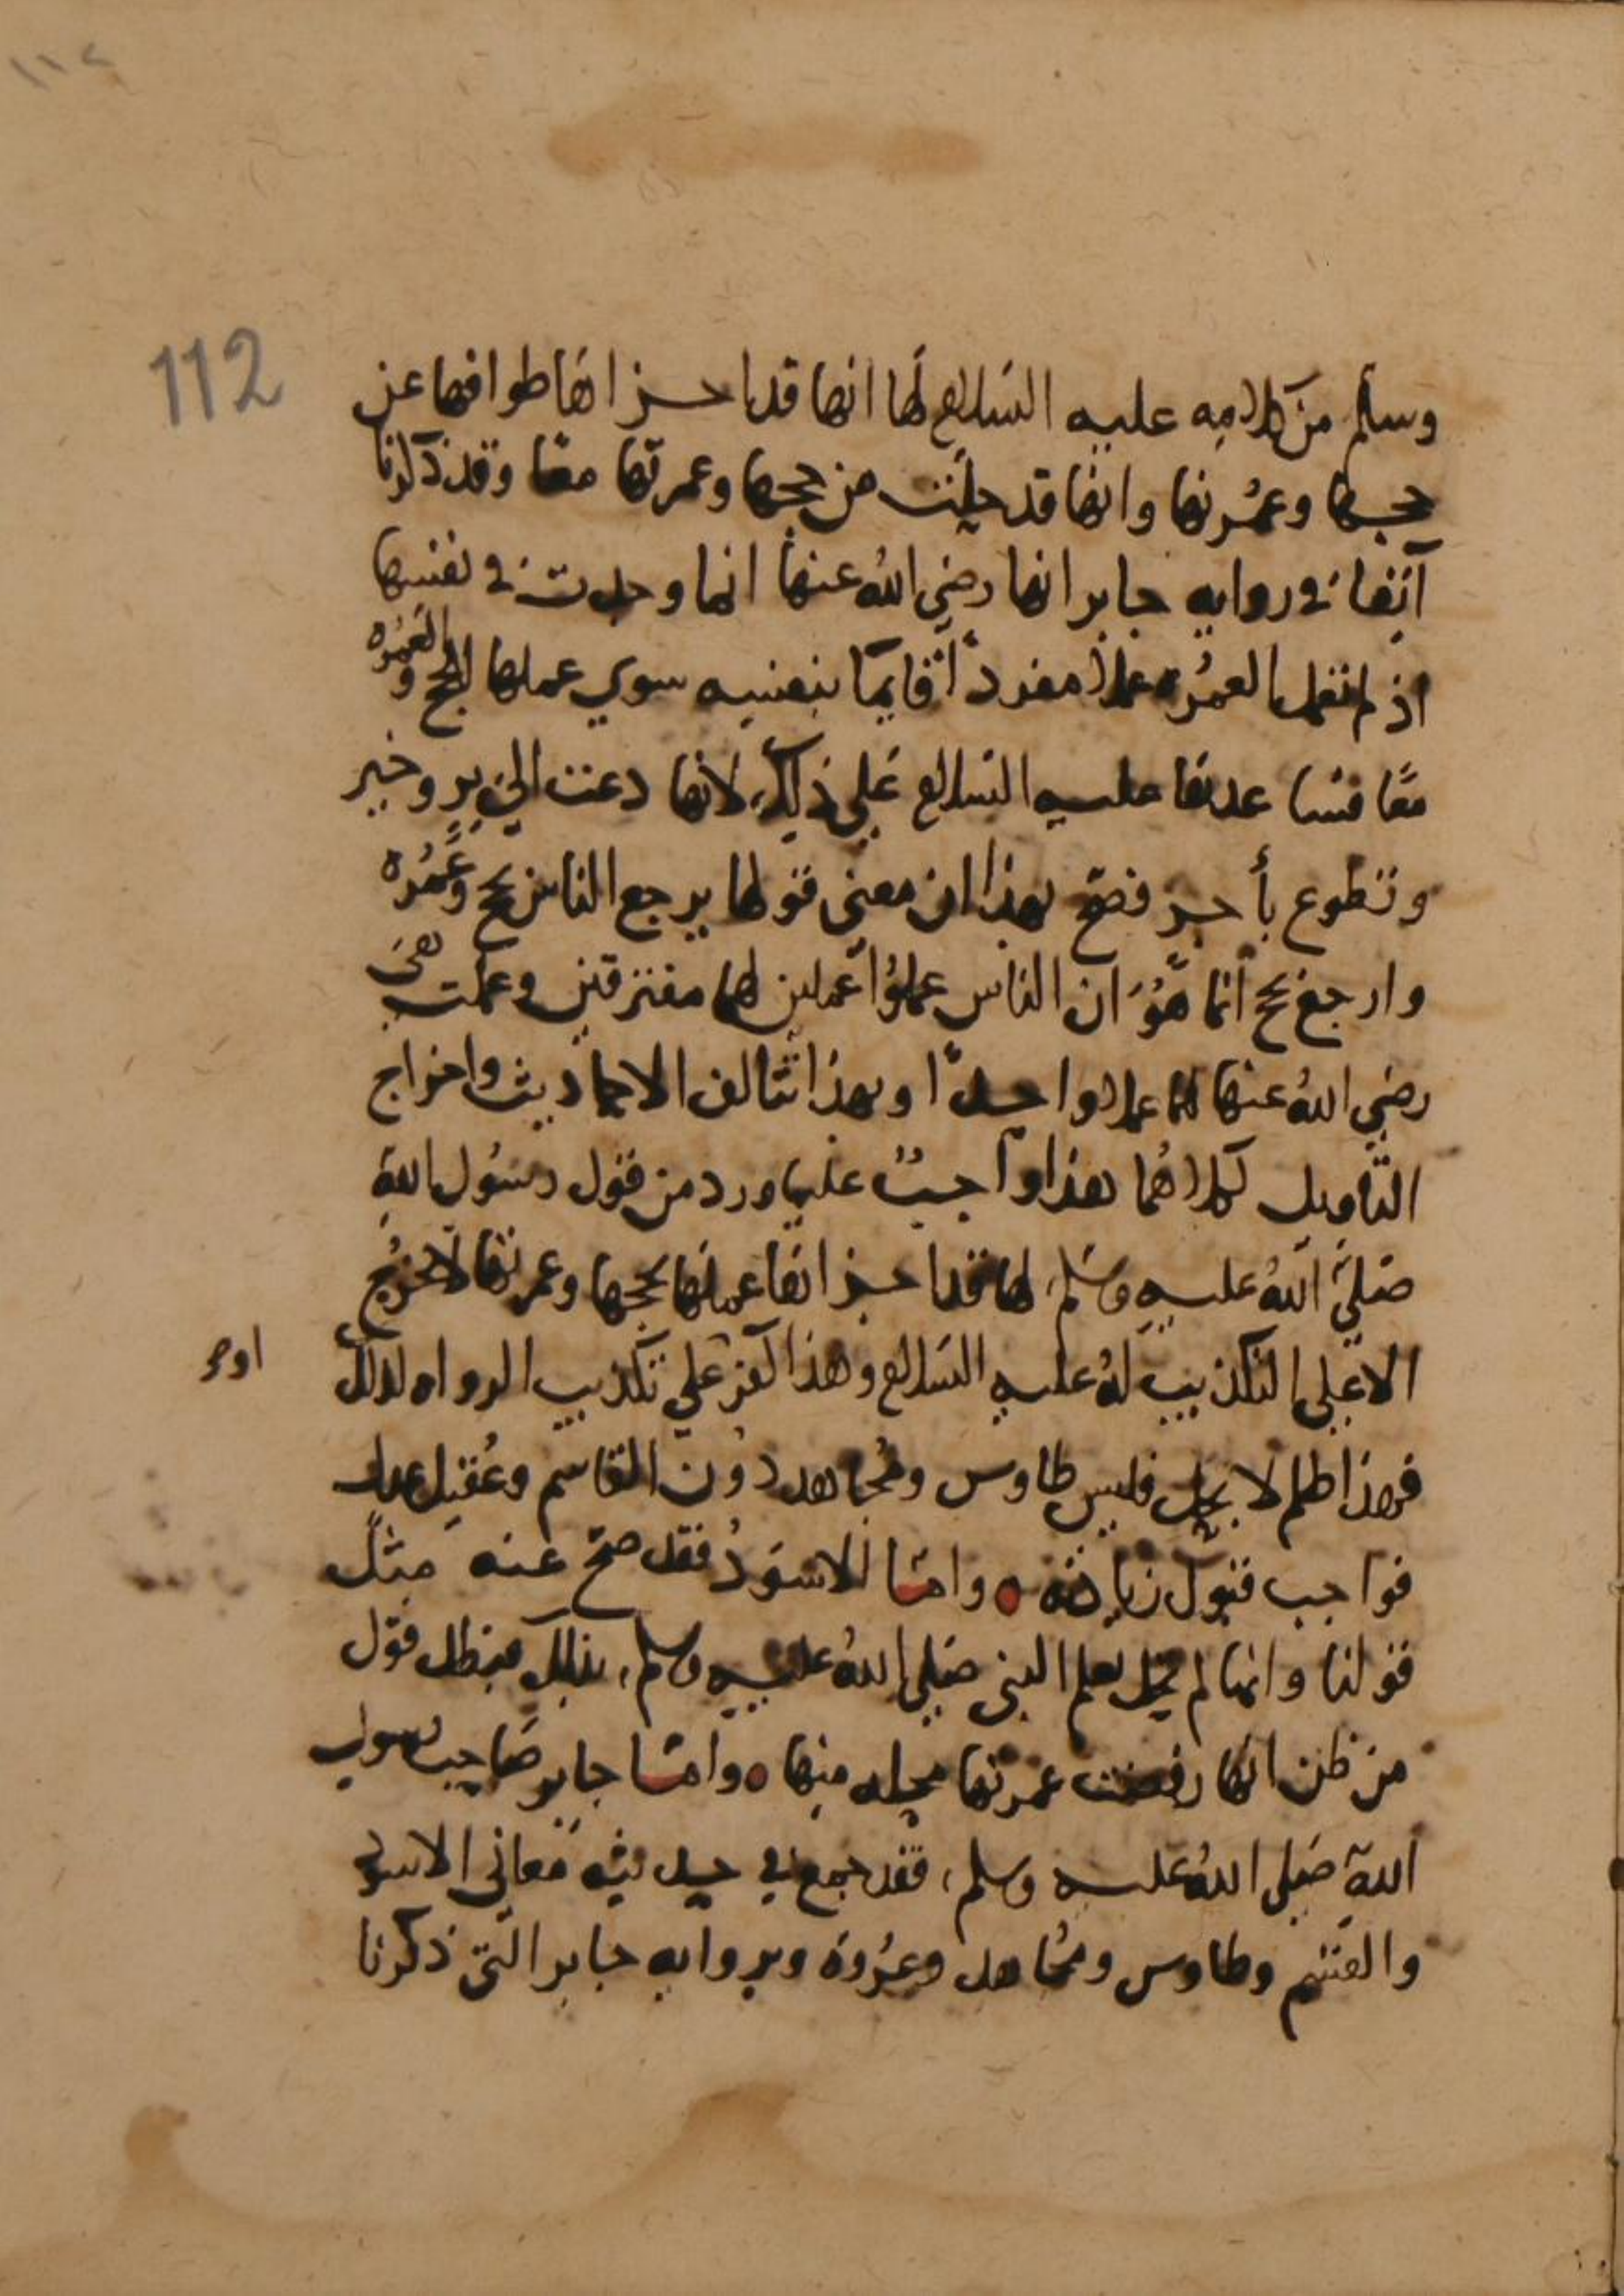 ١١٢
112
وسلم من كلامه عليه السلام لها انها قد اجزاها طوافها عن
حجها وعمرتها وانها قد حلت من حجها وعمرتها معا وقد ذكرنا
آنفا في رواية جابر انها رضي الله عنها انما وجدت في نفسها
اذ لم تعمل العمرة عملا مفردا قايما بنفسه سوي عملها الحج والعمره
معا عليه السلام علي ذلك لانها دعت الي بر وخير
وتطوع بأجر فصح بهذا ان معني قولها يرجع الناس بحج وعمره
وارجع بحج انما هو ان الناس عملوا عملين لهما مفترقين وعملت هي
رضي الله عنها لهما عملا واحدا وبهذا تتالف الاحاديث واخراج
التاويل كلاهما هذا واجب علي ورد من قول رسول الله
صلي الله عليه وسلم لها قد اجزاها عملها لحجها وعمرتها لا يخرج
الا علي التكذيب له عليه السلام وهذا كفر علي تكذيب الرواه لذلك
فهذا ظلم لا يحل فليس طاوس ومجاهد دون القاسم
فواجب قبول زيادته ه واما الاسود فقد صح عنه مثل
قولنا وانما لم تحل بعلم النبي صلي الله عليه وسلم، بذلك فبطل قول
من ظن انها رفضت عمرتها بحله منها ه واما جابر صاحب رسول
الله صلي الله عليه وسلم، فقد جمع في حديثه معاني الاسود
والقسم وطاوس ومجاهد وعروة وبرواية جابر التي ذكرنا